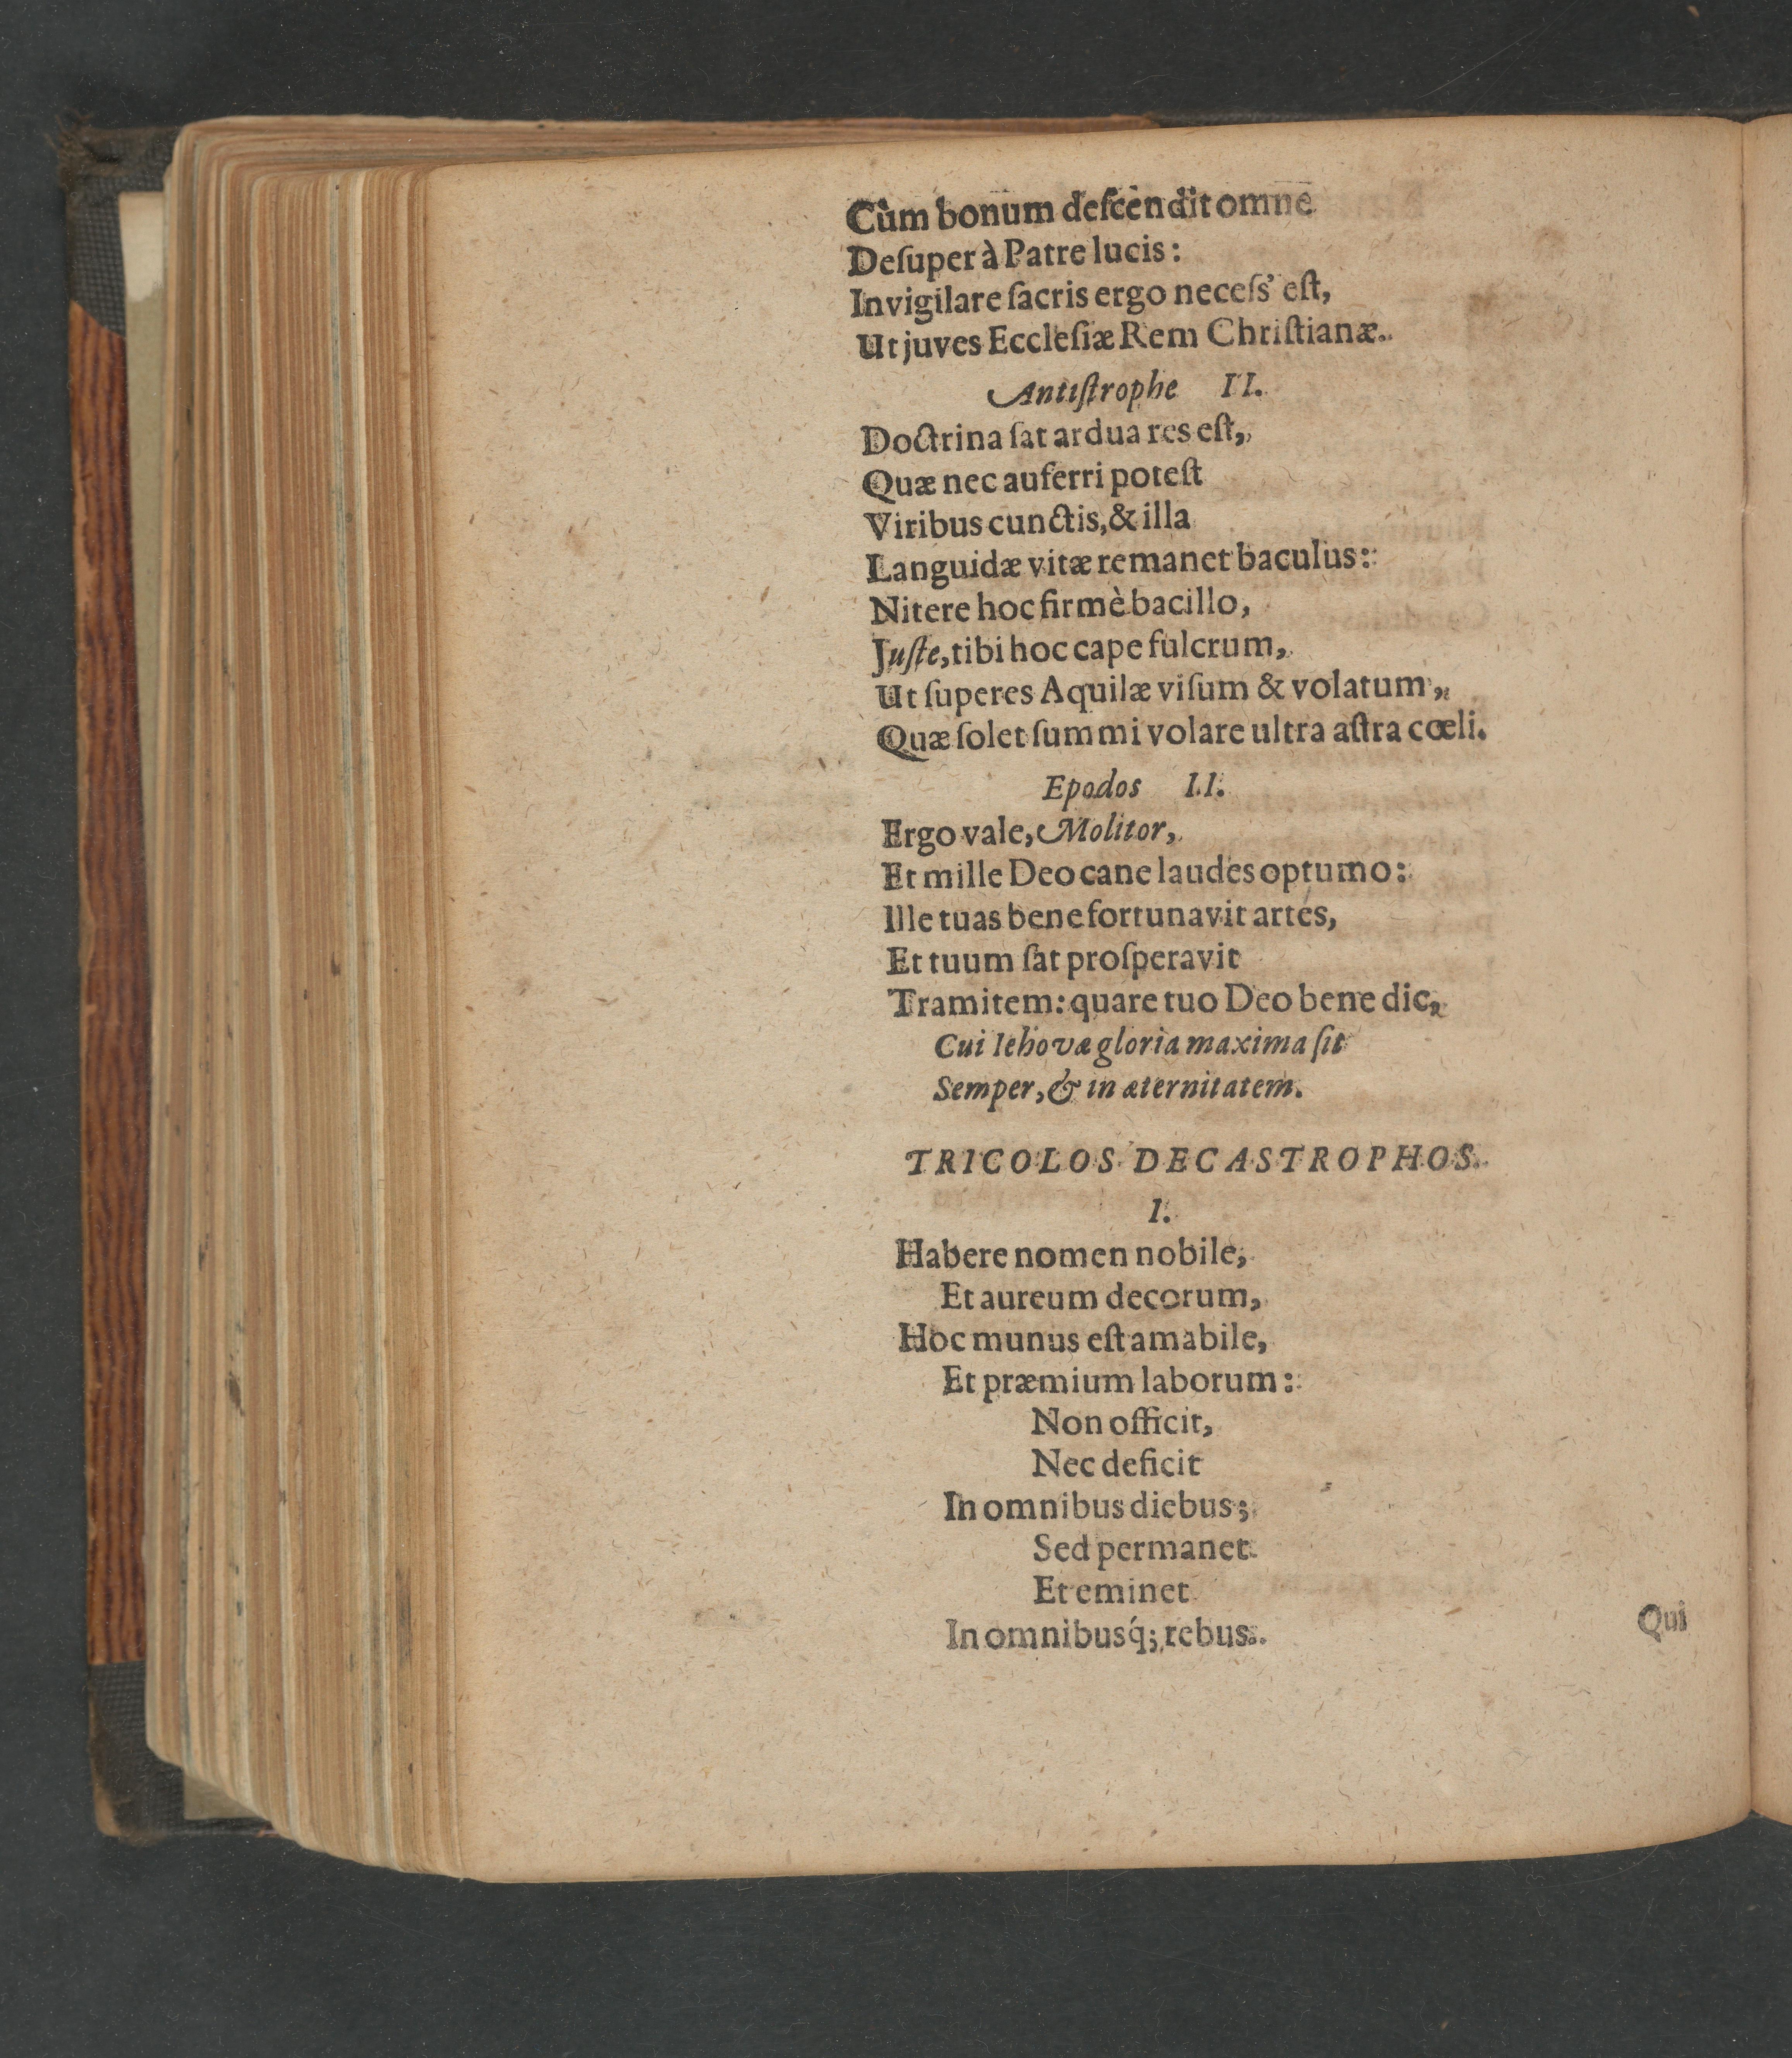 Cùm bonum deſcendit omne
Deſuper à Patre lucis:
Invigilare ſacris ergo neceſs' eſt,
Ut juves Eccleſiæ Rem Chriſtianæ.
Antiſtrophe II.
Doctrina ſat ardua res eſt,
Quæ nec auferri poteſt
Viribus cunctis, & illa
Languidæ vitæ remanet baculus:
Nitere hoc firmè bacillo,
Juſte, tibi hoc cape fulcrum,
Ut ſuperes Aquilæ viſum & volatum,
Quæ ſolet ſummi volare ultra aſtra cœli.
Epodos II.
Ergo vale, Molitor,
Et mille Deo cane laudes optumo:
Ille tuas bene fortunavit artes,
Et tuum ſat proſperavit
Tramitem: quare tuo Deo bene dic,
Cui Iehovæ gloria maxima ſit
Semper, & in æternitatem.
TRICOLOS DECASTROPHOS.
I.
Habere nomen nobile,
Et aureum decorum,
Hoc munus eſt amabile,
Et præmium laborum:
Non officit,
Nec deficit
In omnibus diebus;
Sed permanet
Et eminet
In omnibusq́; rebus.
Qui